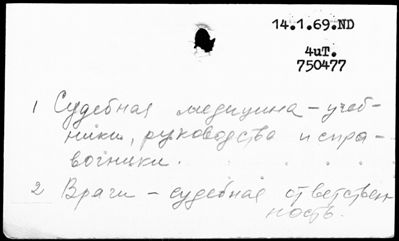 14.1.69.ND
4иТ.
750477
1 Судебная медицина – учеб-
ники, руководства и спра-
вочники.
2 Врачи – судебная ответствен
ность.